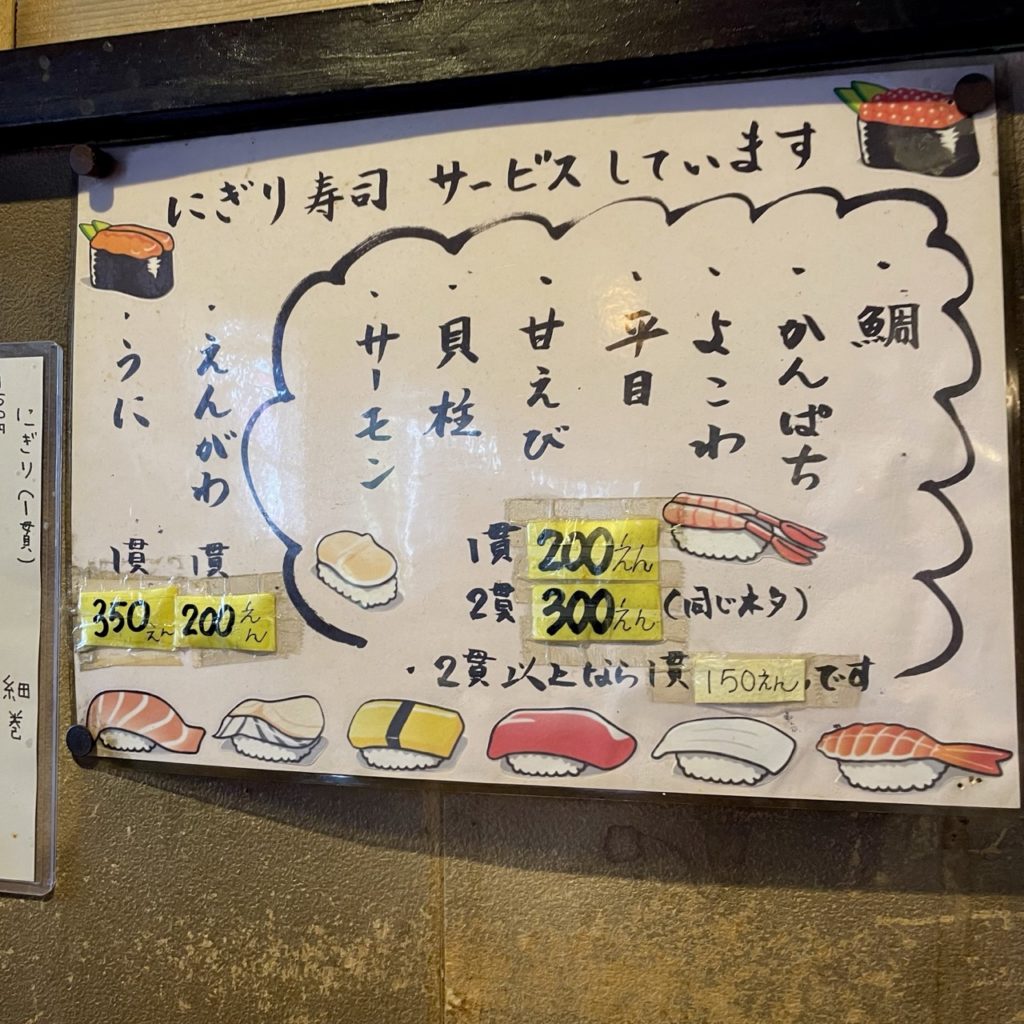 にぎり寿司 サービスしています
・鯛
・かんぱち
・よこわ
・平目
・甘えび
・貝柱
・サーモン
1貫 200えん
2貫 300えん (同じネタ)
・2貫以上なら1貫 150えん です
・えんがわ
1貫
200えん
・うに
1貫
350えん
にぎり(一貫)
細巻